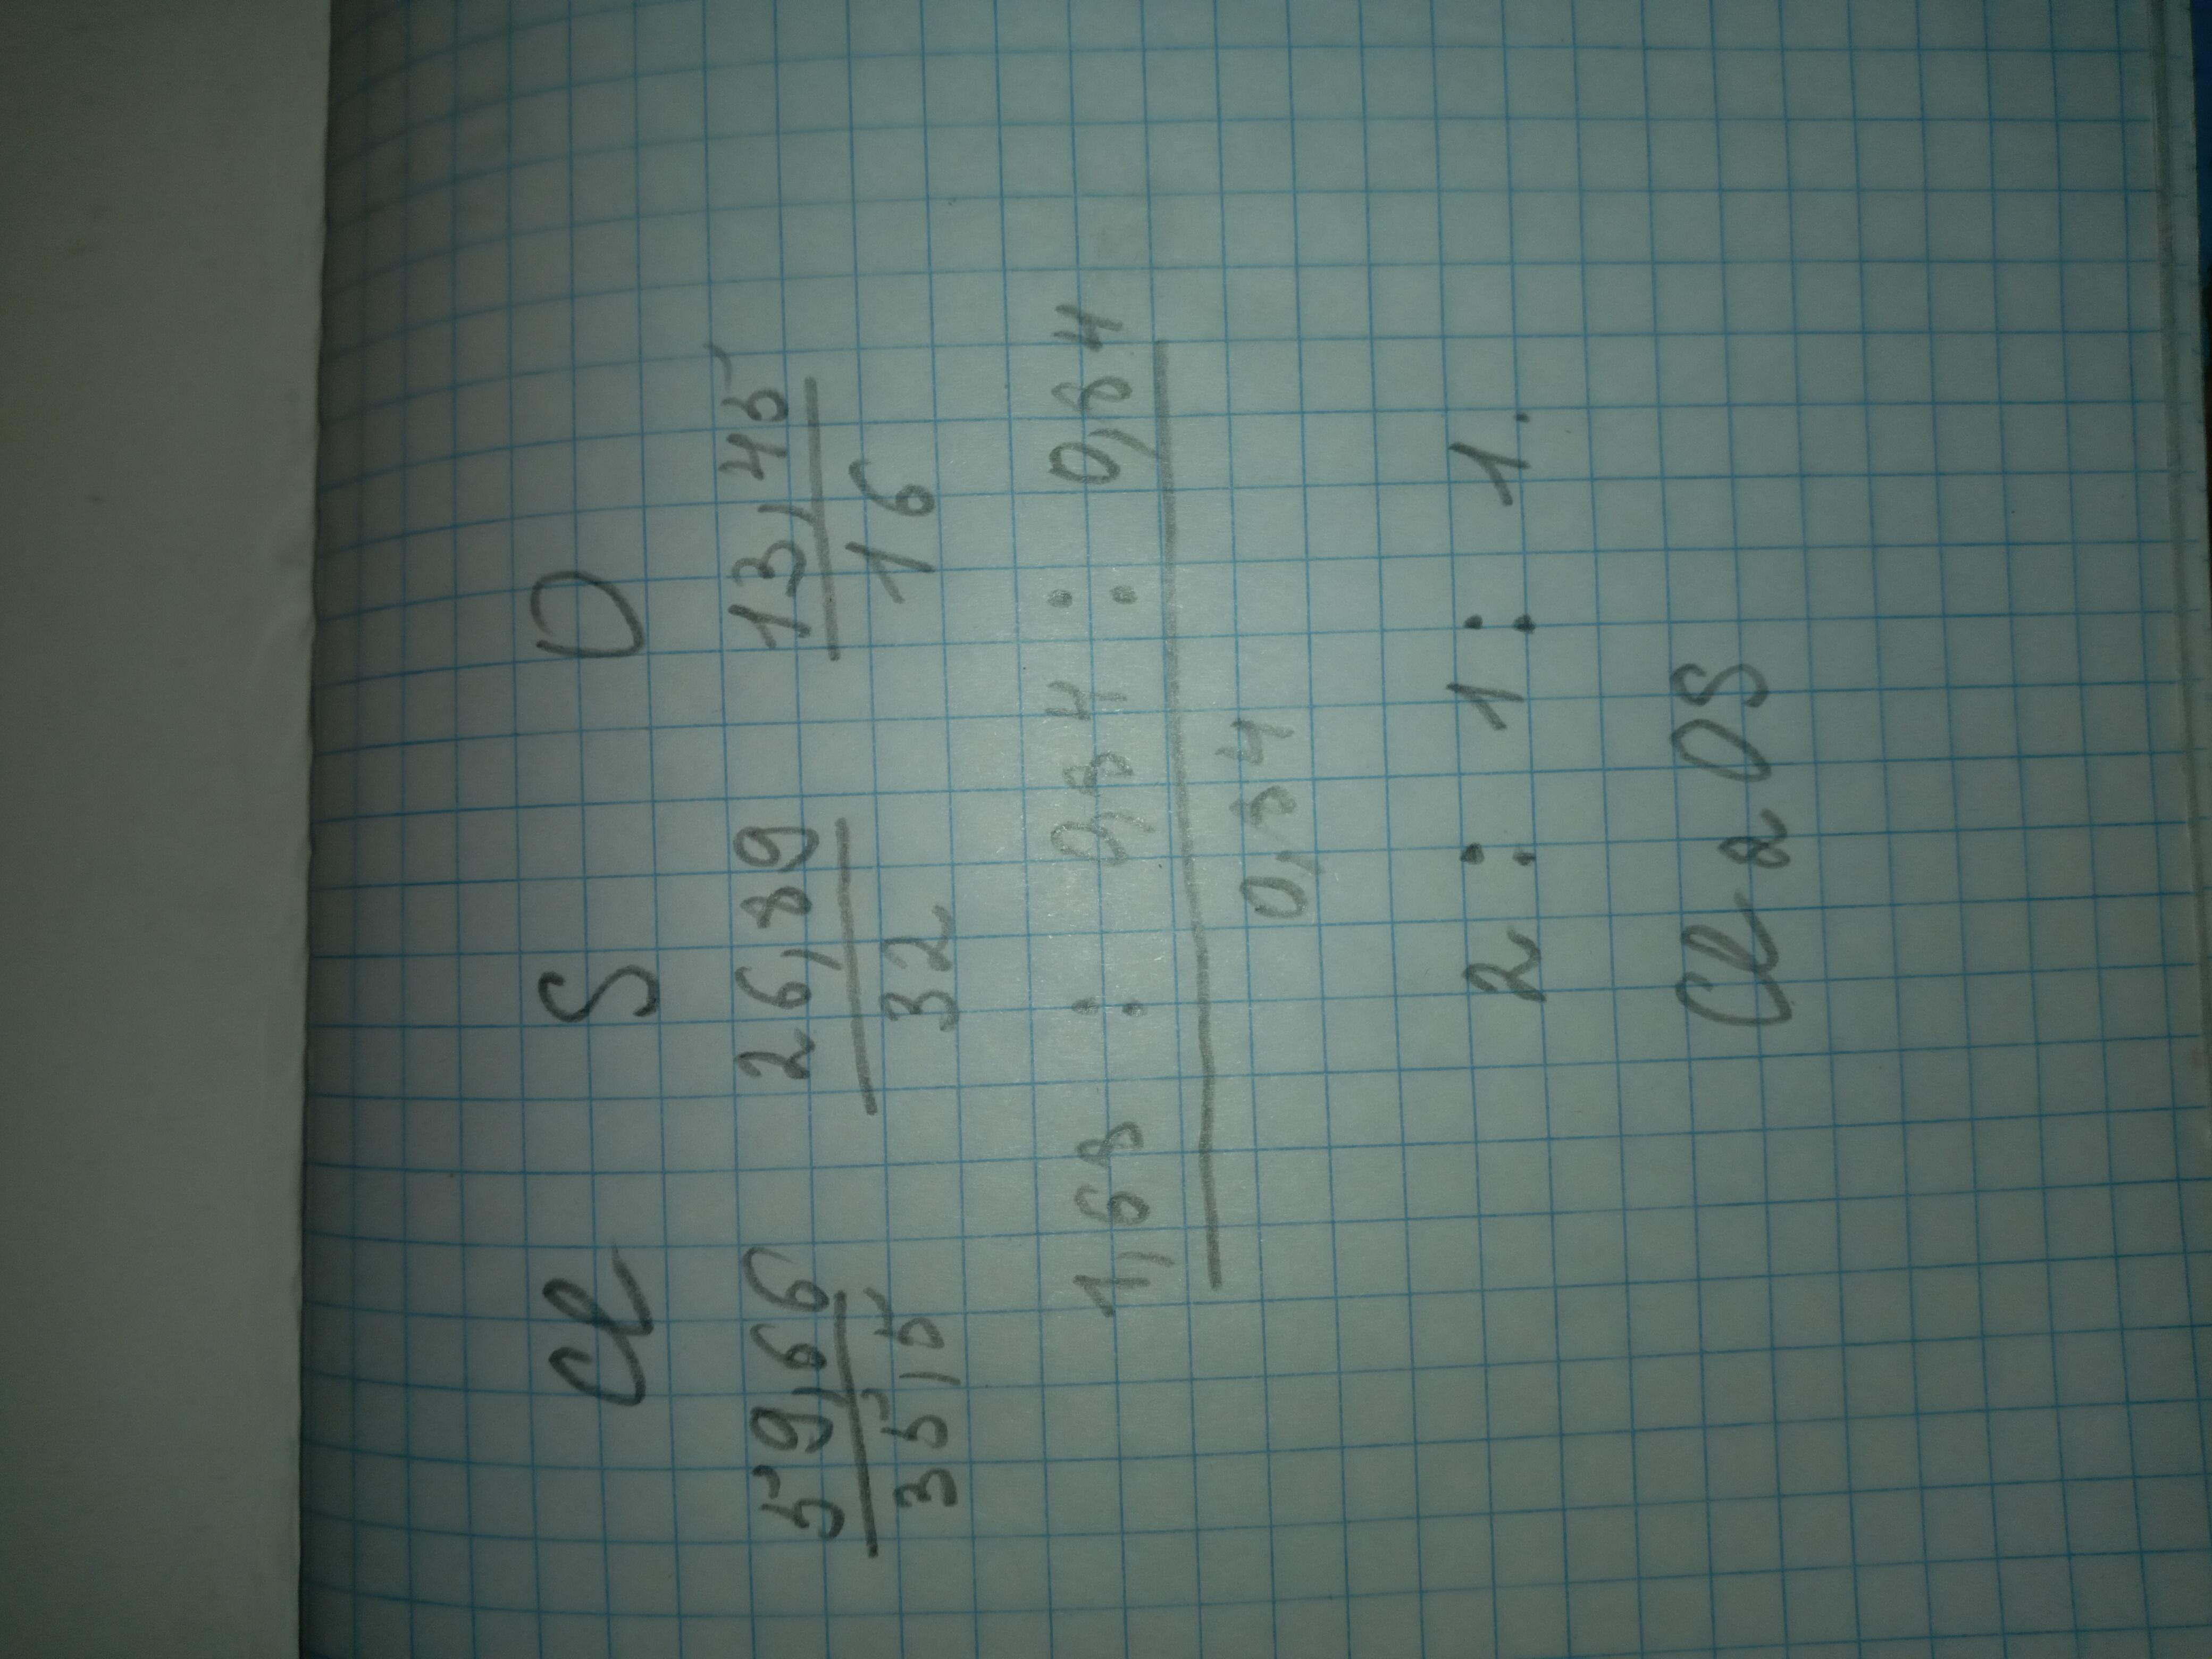 Cl S O
59,66 26,89 13,45
35,5 32 16
1,68 : 0,84 : 0,84
0,84
2 : 1 : 1.
Cl2OS